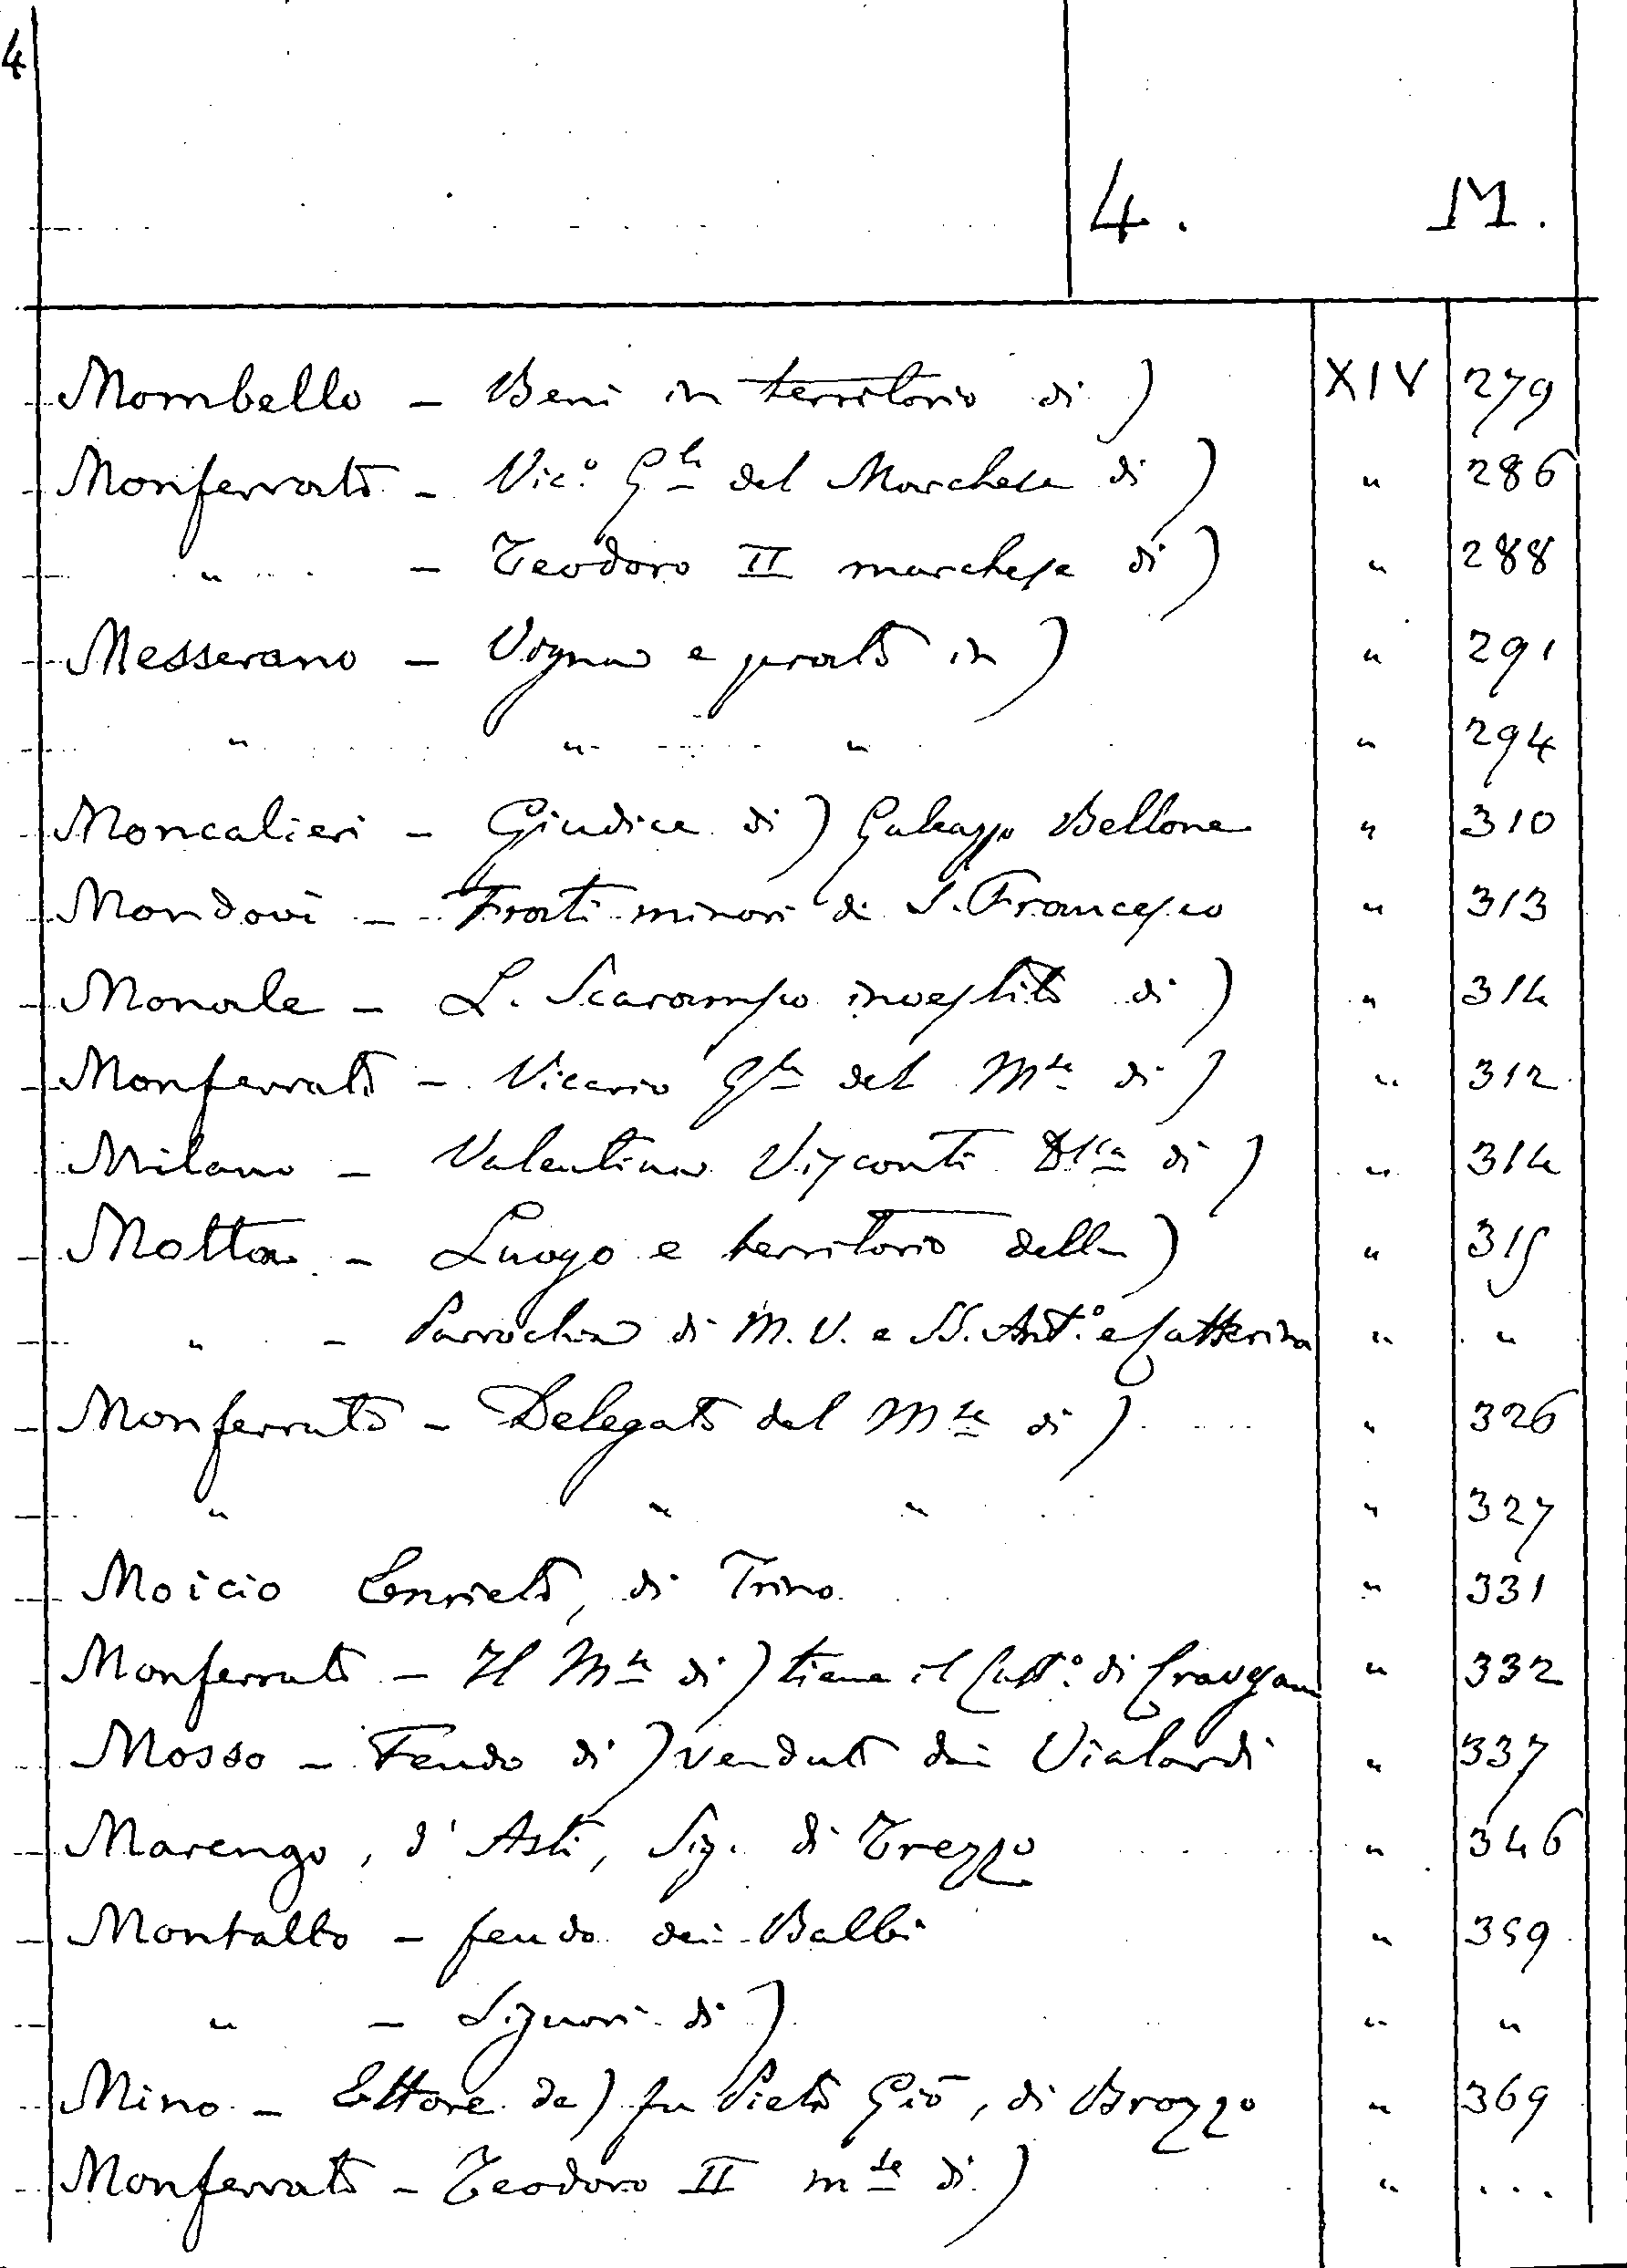 4
4. M.
Mombello - Beni in territorio di) XIV 279
Monferrato - Vic.º G.le del Marchese di) " 286
" - Teodoro II marchese di) " 288
Messerano - Vigna e prato in) " 291
" " " " 294
Moncalieri - Giudice di) Galeazzo Bellone " 310
Mondovì - Frati minori di S. Francesco " 313
Monale - L. Scarampo investito di) " 314
Monferrato - Vicario G.le del M.se di) " 312
Milano - Valentina Visconti D.ssa di) " 314
Motta - Luogo e territorio della) " 315
" - Parrochia di M. V. e SS. Ant.º e Catterina " "
Monferrato - Delegato del M.se di) " 326
" " " " 327
Moicio Enrieto, di Trino " 331
Monferrato - Il M.se di) tiene il Cast.º di " 332
Mosso - Feudo di) venduto dai Vialardi " 337
Marengo, d'Asti, Sig. di Trezzo " 346
Montalto - feudo dei Balbi " 359
" - Signori di) " "
Mino - Ettore de) fu Pietro Gió, di Brozzo " 369
Monferrato - Teodoro II m.se di) " ...